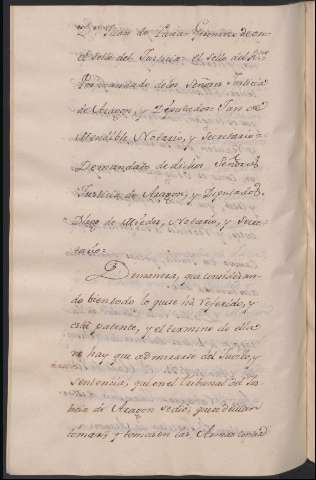 Dn. Juan de
el sello del Justicia: el sello del R.no
Por demandado delos Señores Justicia
de Aragon, y Diputados: Jan de
Mendibil, Notario, y Secretario =
Demandato de dichos Señores
Justicia de Aragon, y Diputados
Diego de Miedes, Notario, y Secre
tario =
De manera, que consideran
do bien todo lo que se ha referido, y
está patente, y el termino de ella
no hay que admirarse del Juicio, y
sentencia, que en el tribunal del Jus
ticia de Aragon sedio, que deuian
tomar, y tomaron las Armas contra